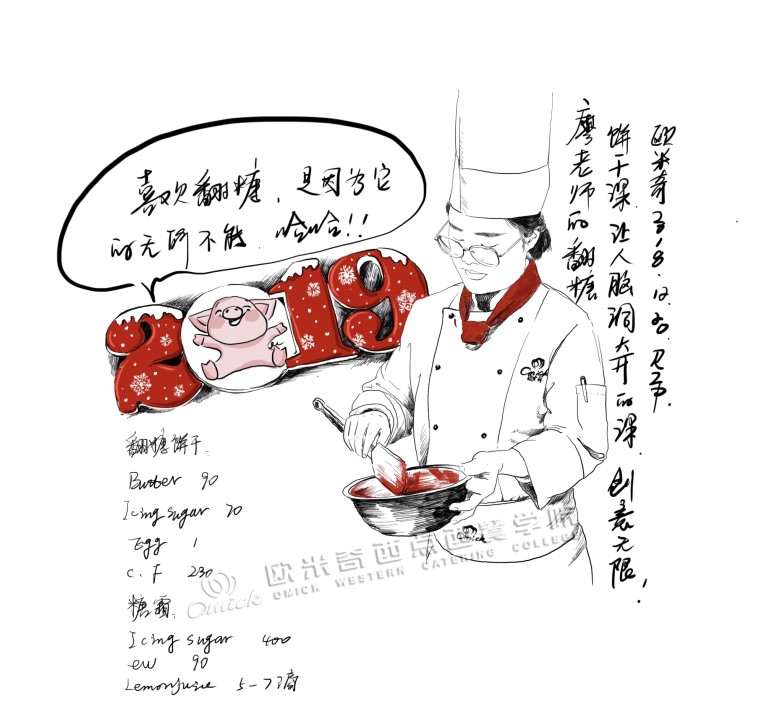 喜欢翻糖，是因为它
的无所不能 哈哈!!
2019
欧米奇 2018.12.20.
廖老师的翻糖
饼干课.让人脑洞大开的课.创意无限!
翻糖饼干
Butter 90
Icing sugar 70
Egg 1
C.F 230
糖霜
Icing sugar 400
ew 90
Lemonjusie 5-7滴
欧米奇西点西餐学院
Omick OMICK WESTERN CATERING COLLEGE